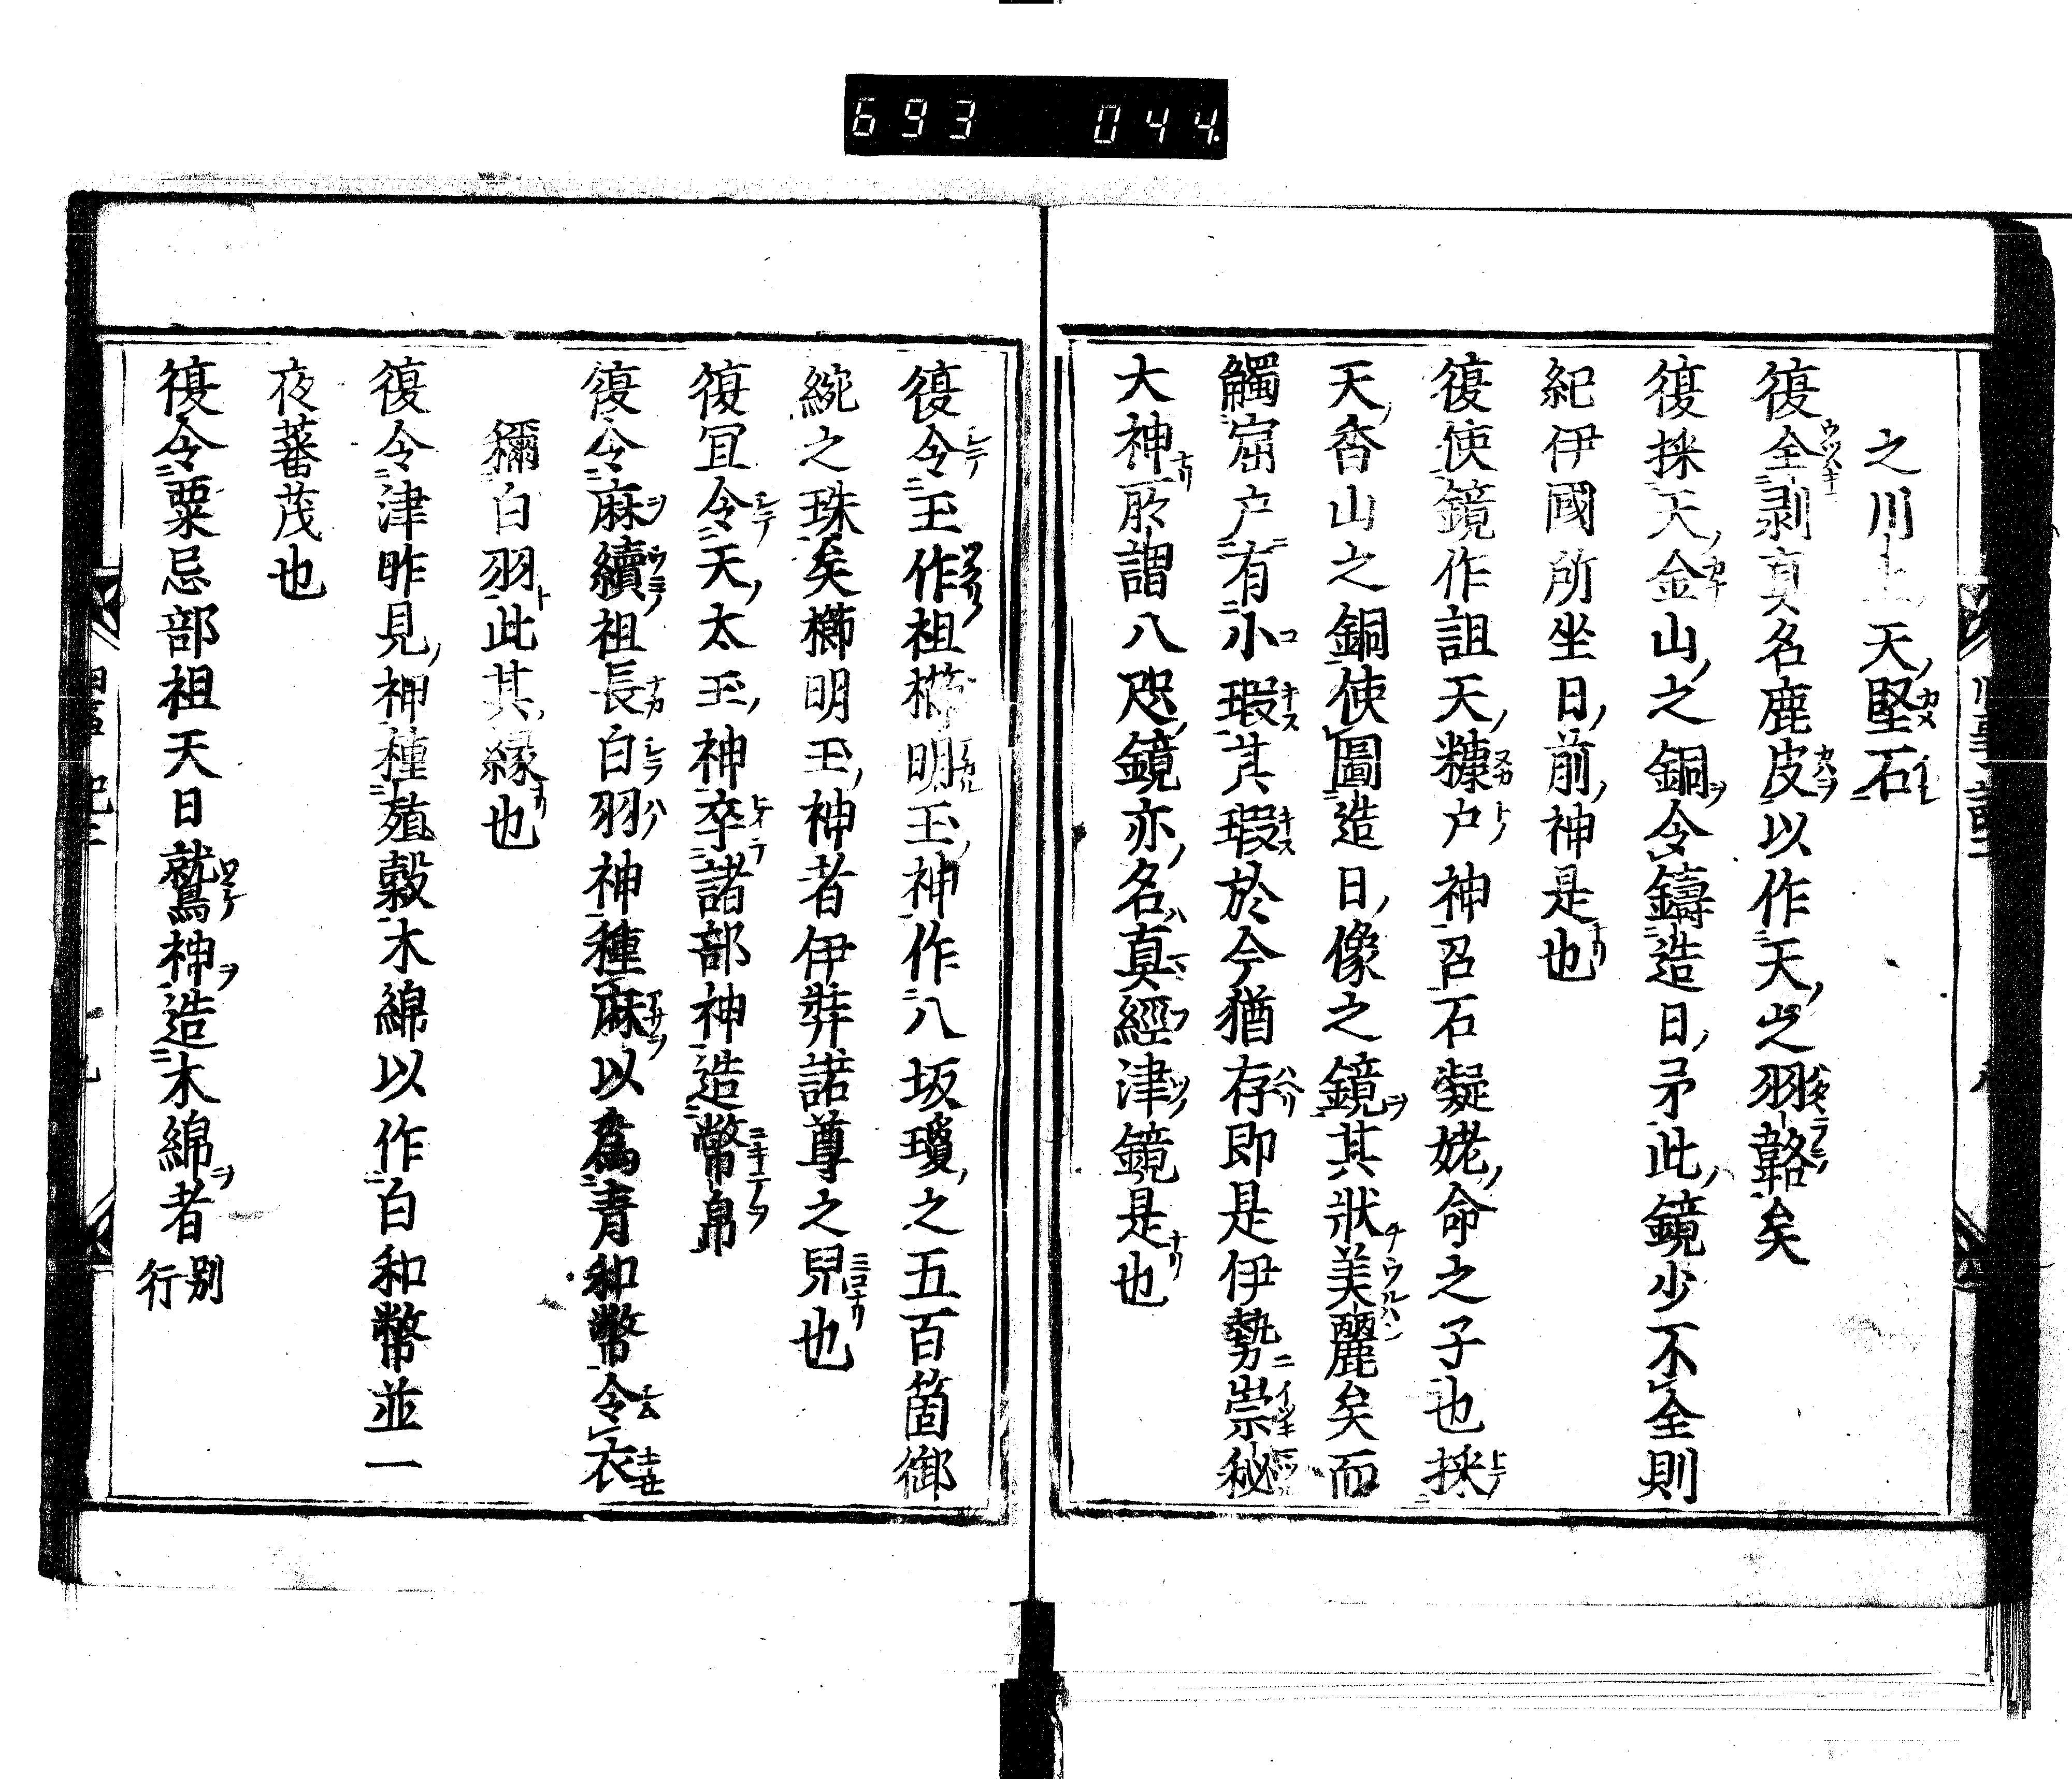 693 044
之川上天堅石
復全剥真名鹿皮以作天之羽鞴矣
復採天金山之銅令鑄造日矛此鏡少不全則
紀伊國所坐日前神是也
復使鏡作詛天糠戸神召石凝姥命之子也採
天香山之銅使圖造日像之鏡其狀美麗矣而
觸窟戸有小瑕其瑕於今猶存即是伊勢崇秘
大神所謂八咫鏡亦名真經津鏡是也
復令玉作祖櫛明玉神作八坂瓊之五百箇御
統之珠矣櫛明玉神者伊弉諾尊之兒也
復冝令天太玉神率諸部神造幣帛
復令麻續祖長白羽神種麻以為青和幣令衣
稱白羽此其緣也
復令津咋見神種殖穀木綿以作白和幣並一
夜蕃茂也
復令粟忌部祖天日鷲神造木綿者別行